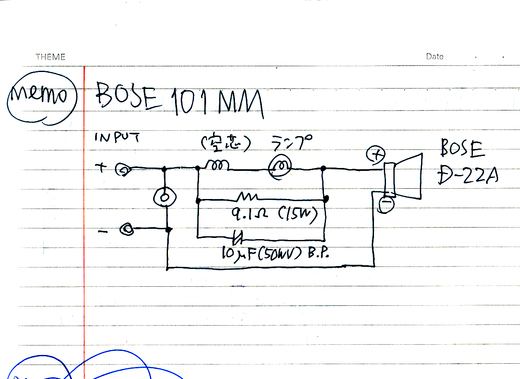 THEME
Date
memo
BOSE 101MM
INPUT
(空芯) ランプ
+
+
BOSE
D-22A
9.1Ω (15W)
-
-
10μF(50WV) B.P.